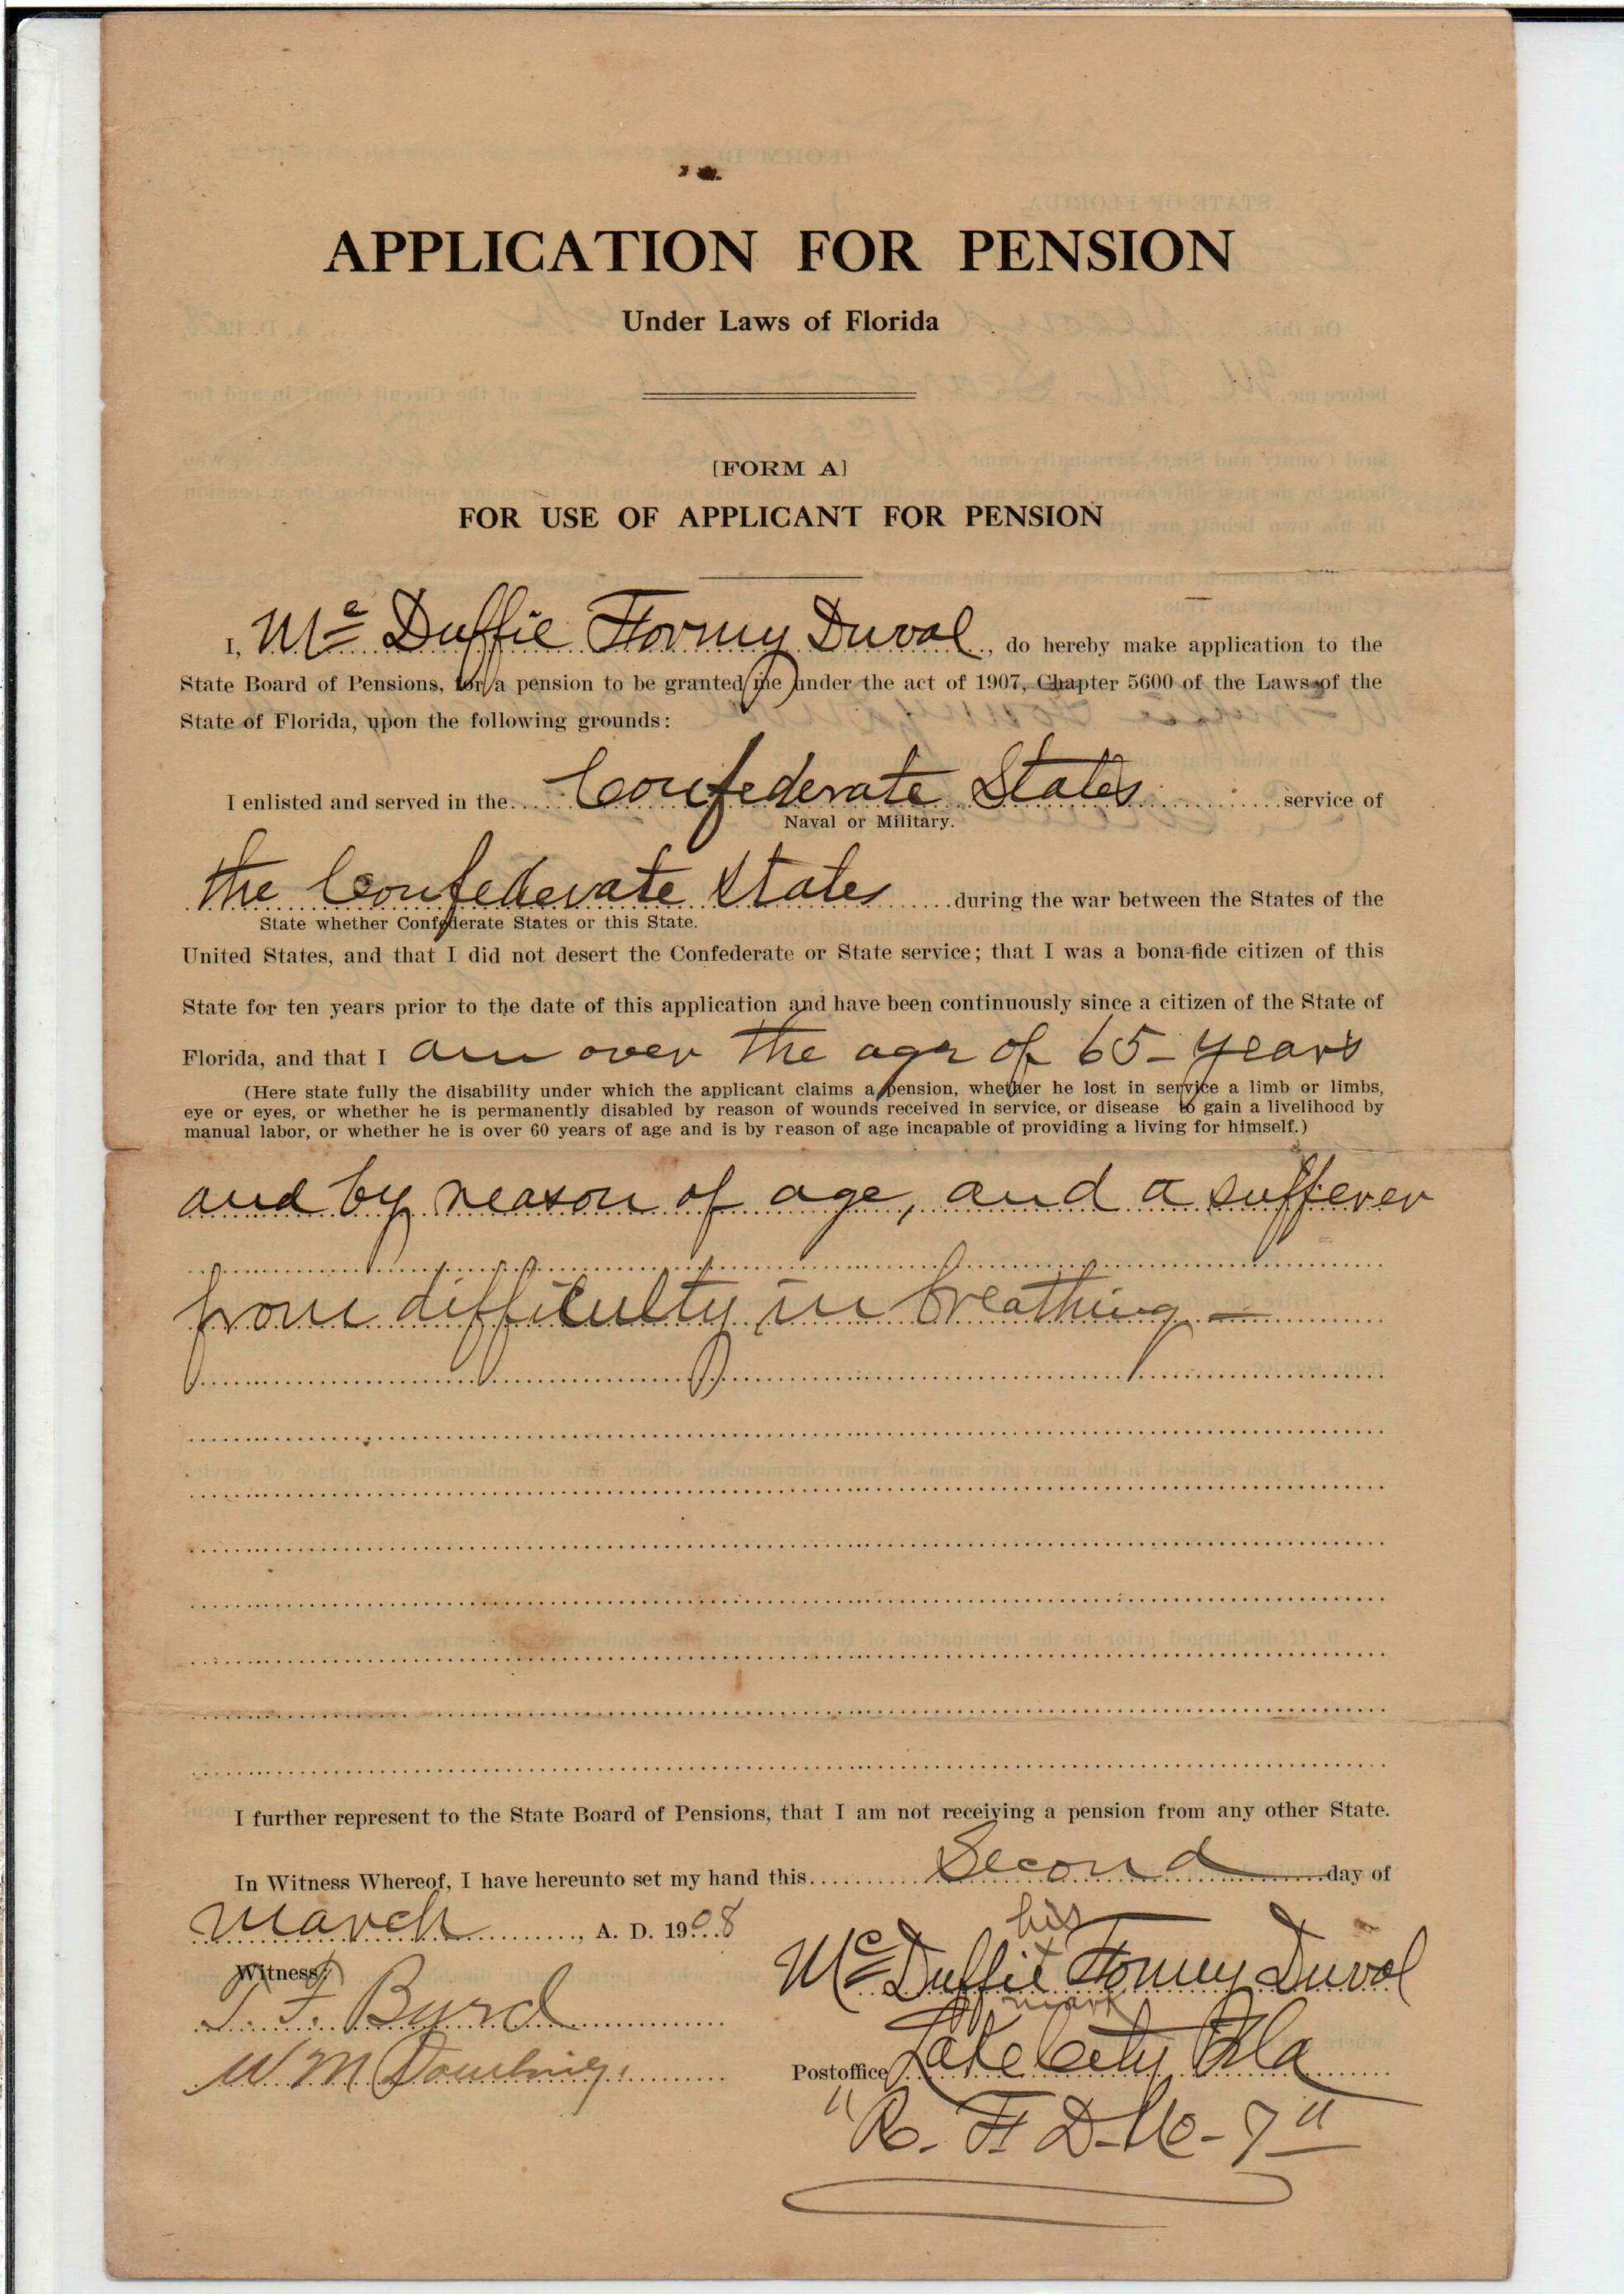 APPLICATION FOR PENSION
Under Laws of Florida
[FORM A]
FOR USE OF APPLICANT FOR PENSION
I, Mc Duffie Formy Duval, do hereby make application to the
State Board of Pensions, for a pension to be granted me under the act of 1907, Chapter 5600 of the Laws of the
State of Florida, upon the following grounds:
I enlisted and served in the Confederate States service of
Naval or Military.
the Confederate States during the war between the States of the
State whether Confederate States or this State.
United States, and that I did not desert the Confederate or State service; that I was a bona-fide citizen of this
State for ten years prior to the date of this application and have been continuously since a citizen of the State of
Florida, and that I am over the age of 65 - years
(Here state fully the disability under which the applicant claims a pension, whether he lost in service a limb or limbs,
eye or eyes, or whether he is permanently disabled by reason of wounds received in service, or disease to gain a livelihood by
manual labor, or whether he is over 60 years of age and is by reason of age incapable of providing a living for himself.)
and by reason of age, and a sufferer
from difficulty in breathing —
I further represent to the State Board of Pensions, that I am not receiving a pension from any other State.
In Witness Whereof, I have hereunto set my hand this Second day of
March, A. D. 1908
his
Mc Duffie x Formy Duval
mark
Witness:
T. F. Byrd
W. M
Postoffice Lake City Fla
"R. F. D. No - 7"